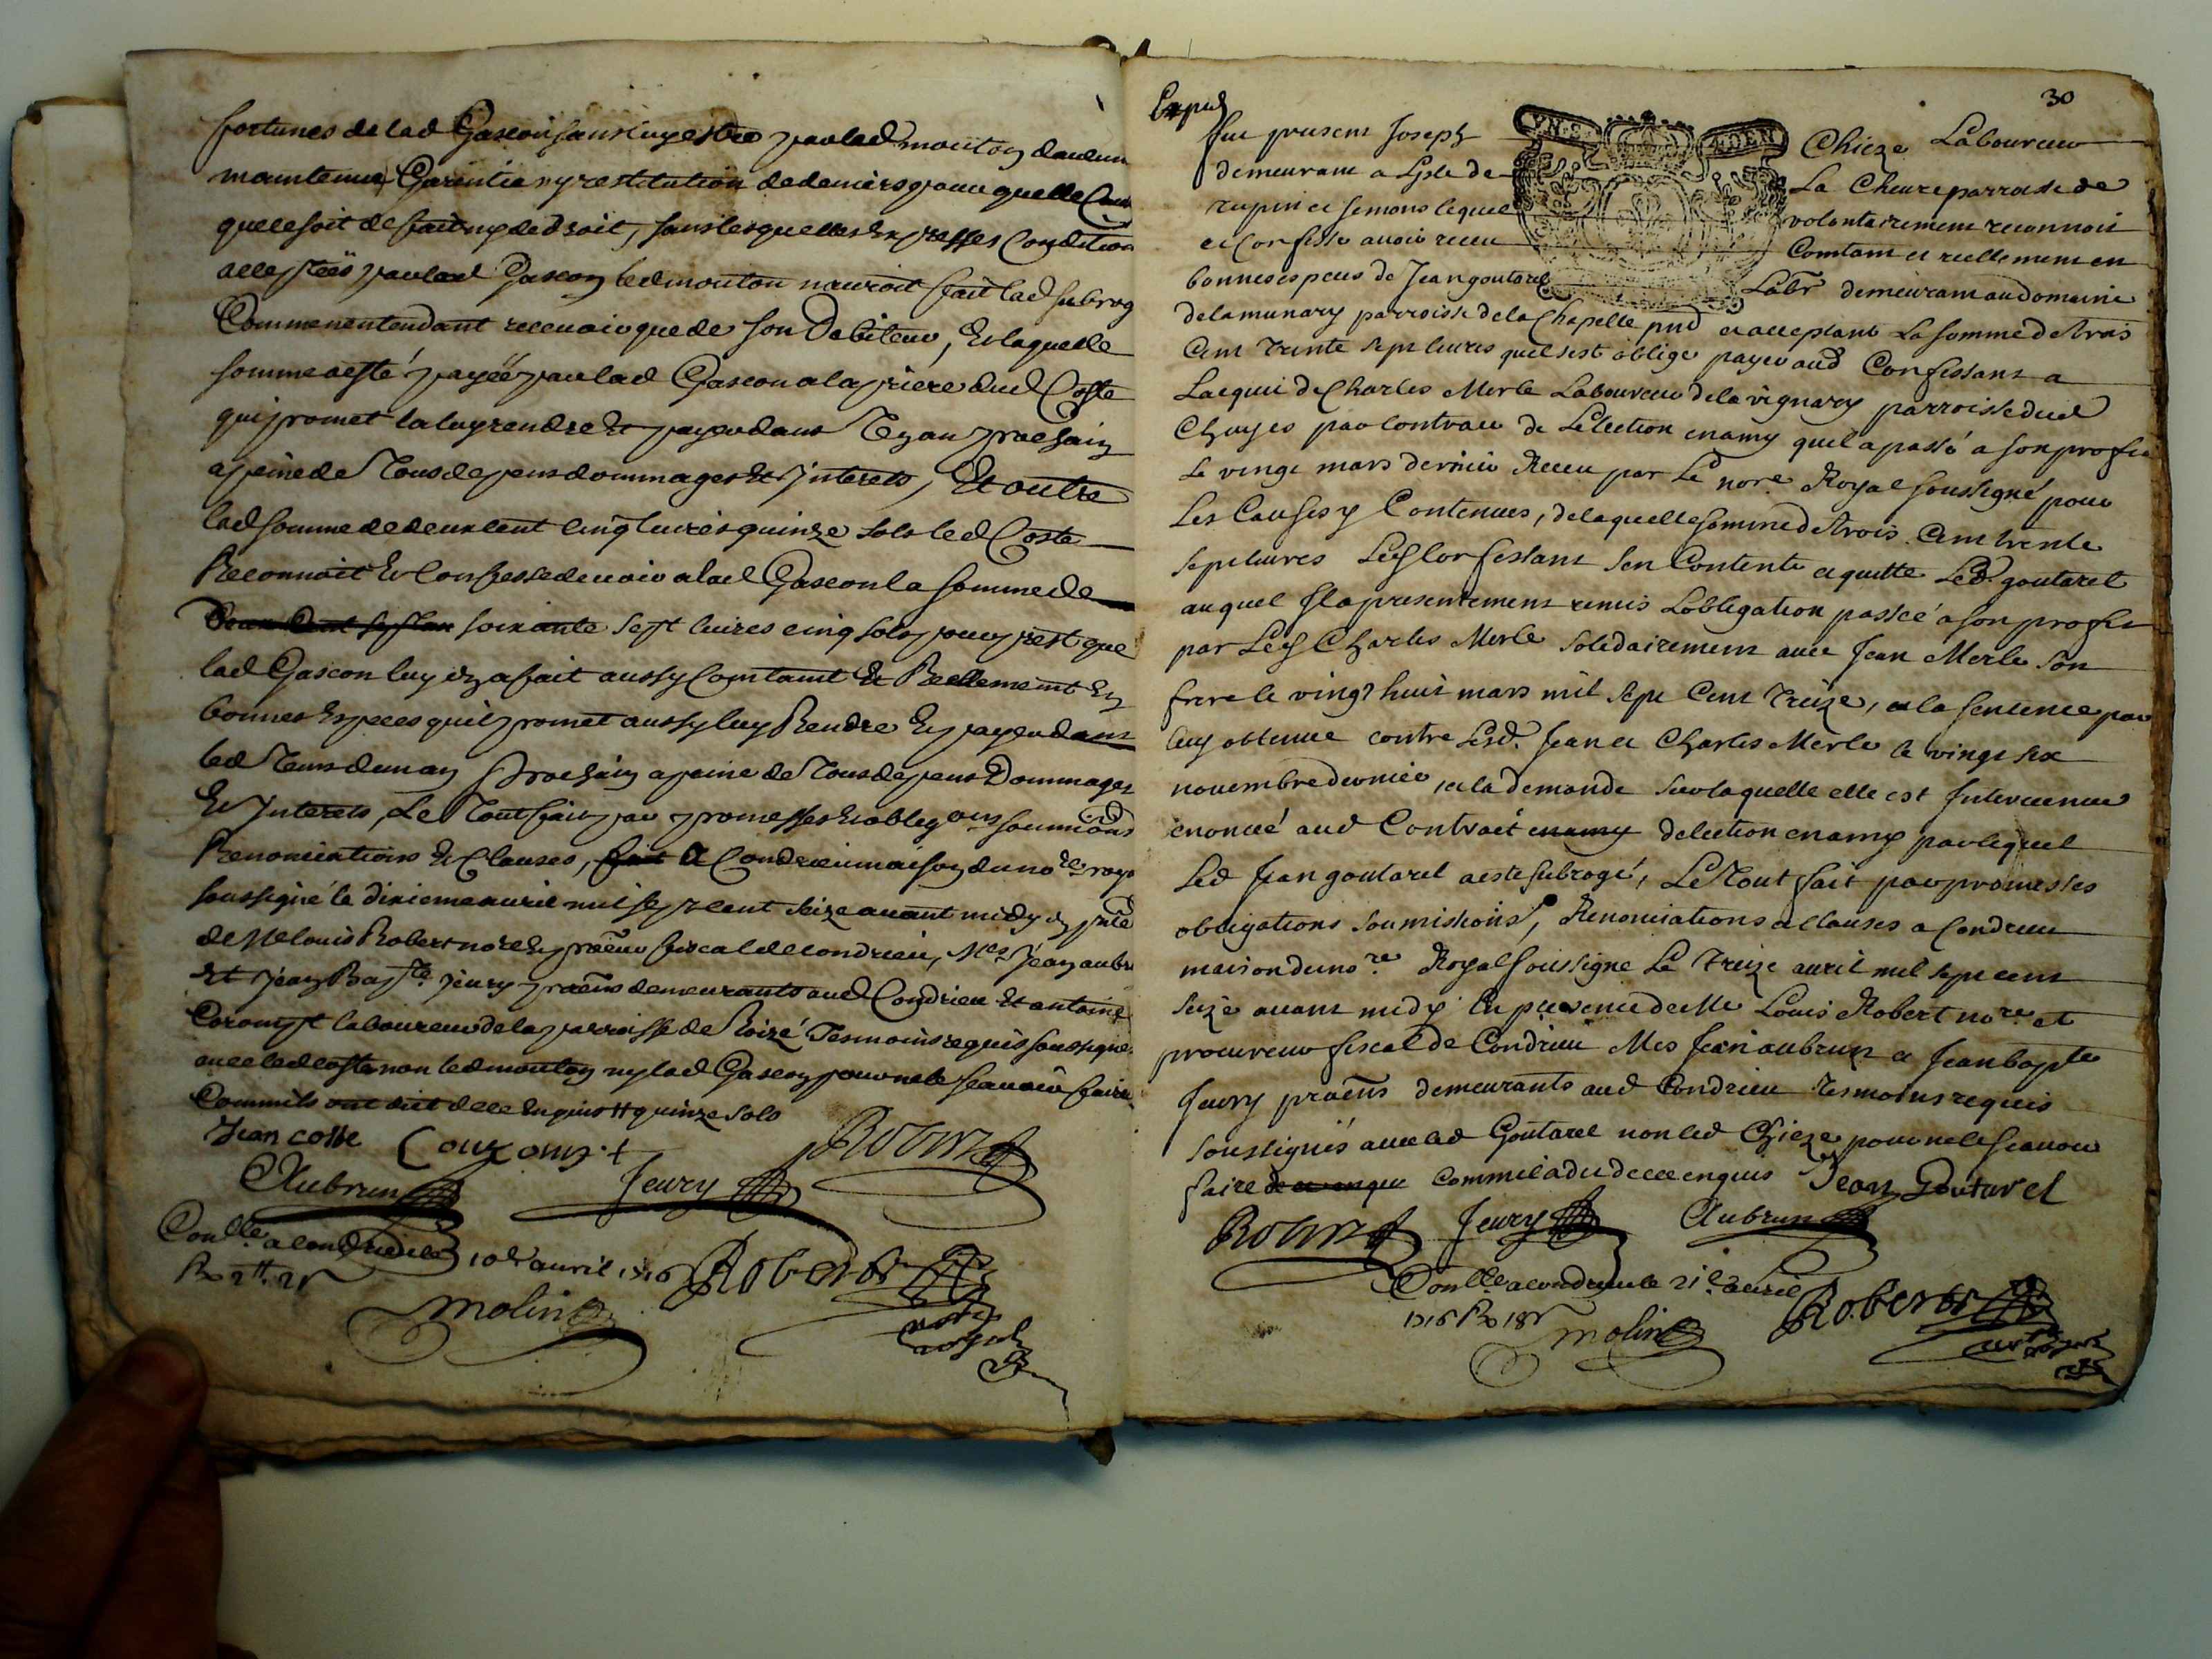 fortunes de lad Gascon sans luy estre par led mouton daucune
maintenue Garentie ny restitution de deniers pour quelle Cause
que ce soit de fait ny de droit, sans lesquelles Expresses Condition
acceptées par lad Gascon led mouton nauroit fait lad subrog
Comme nentendant recevoir que de son Debiteur, Et laquelle
somme a esté payée par lad Gascon a la priere dud Coste
qui promet la luy rendre Et payer dans Ung an prochain
a peine de Tous depens dommages Et Interets, Et outre
lad somme de deux cent cinq livres quinze sols led Coste
Reconnoit Et Confesse devoir a lad Gascon la somme de
soixante sept livres cinq sols pour prest que
lad Gascon luy en a fait aussy Comtamt Et Reellememt En
bonnes Especes quil promet aussy luy Rendre Et payer dans
led Tems dun an prochain a peine de Tous depens Dommages
Et Interets, Le Tout fait par promesses Et obligons soumions
Renonciations Et Clauses, fait A Condrieu maison du nore roya
soussigné le dixieme avril mil sept cent seize avant midy en pnce
de Me Louis Robert nore Et procur fiscal de Condrieu, Mes Jean aubru
Et Jean Bapte Jeury procurs demeurants aud Condrieu Et antoine
Corompt laboureur de la parroisse de Roizé Tesmoins requis soussignes
avec led coste non led mouton ny lad Gascon pour ne le scavoir faire
Commils ont dit de ce Enquis # quinze sols
Jean coste
Aubrun Jeury Robert
Conlle a Condrieu le 10e avril 1716 Robert
Ro 2tt 2s
molin
nore
royal
30
Expid
fut present Joseph Chieze Laboureur
demeurant a Lisle de La Chevre parroisse de
rupin et semons lequel volontairement reconnoit
et Confesse avoir receu Comtant et reellement en
bonnes especes de Jean goutarel Labr demeurant au domaine
de la munary parroisse de la Chapelle pnt et acceptant La somme de trois
Cent trente sept livres quil sest oblige payer aud Confessant a
Lacquit de Charles Merle Laboureur de la vignary parroisse dud
Chuyes par Contract de Lélection enamy quil a passé a son profit
Le vingt mars dernier Receu par Le nore Royal soussigné pour
Les Causes y Contenues, de laquelle somme de trois Cent trente
sept livres Led Confessant sen Contente et quitte Led. goutarel
auquel Il a presentement remis Lobligation passée a son profit
par Led Charles Merle solidairement avec Jean Merle son
frere le vingt huit mars mil sept Cent treize, et la sentence par
luy obtenue contre Lesd. Jean et Charles Merle le vingt six
novembre dernier, et la demande sur laquelle elle est Intervenue
enoncée aud Contract enamy delection enamy par lequel
Led Jean goutarel a esté subrogé, Le Tout fait par promesses
obligations soumissions, Renonciations et clauses a Condrieu
maison du nore Royal soussigne Le Treize avril mil sept cent
seize avant midy En presence de Me Louis Robert nore et
procureur fiscal de Condrieu Mes Jean aubrun et Jean bapte
Jeury procurs demeurants aud Condrieu Tesmoins requis
soussignés avec led Goutarel non led Chieze pour ne le scavoir
faire de ce enquis Comme il a dit de ce enquis Jean Goutarel
Robert Jeury Aubrun
Conlle a Condrieu le 21e avril
1716 Ro 18s
molin Robert
nore royal